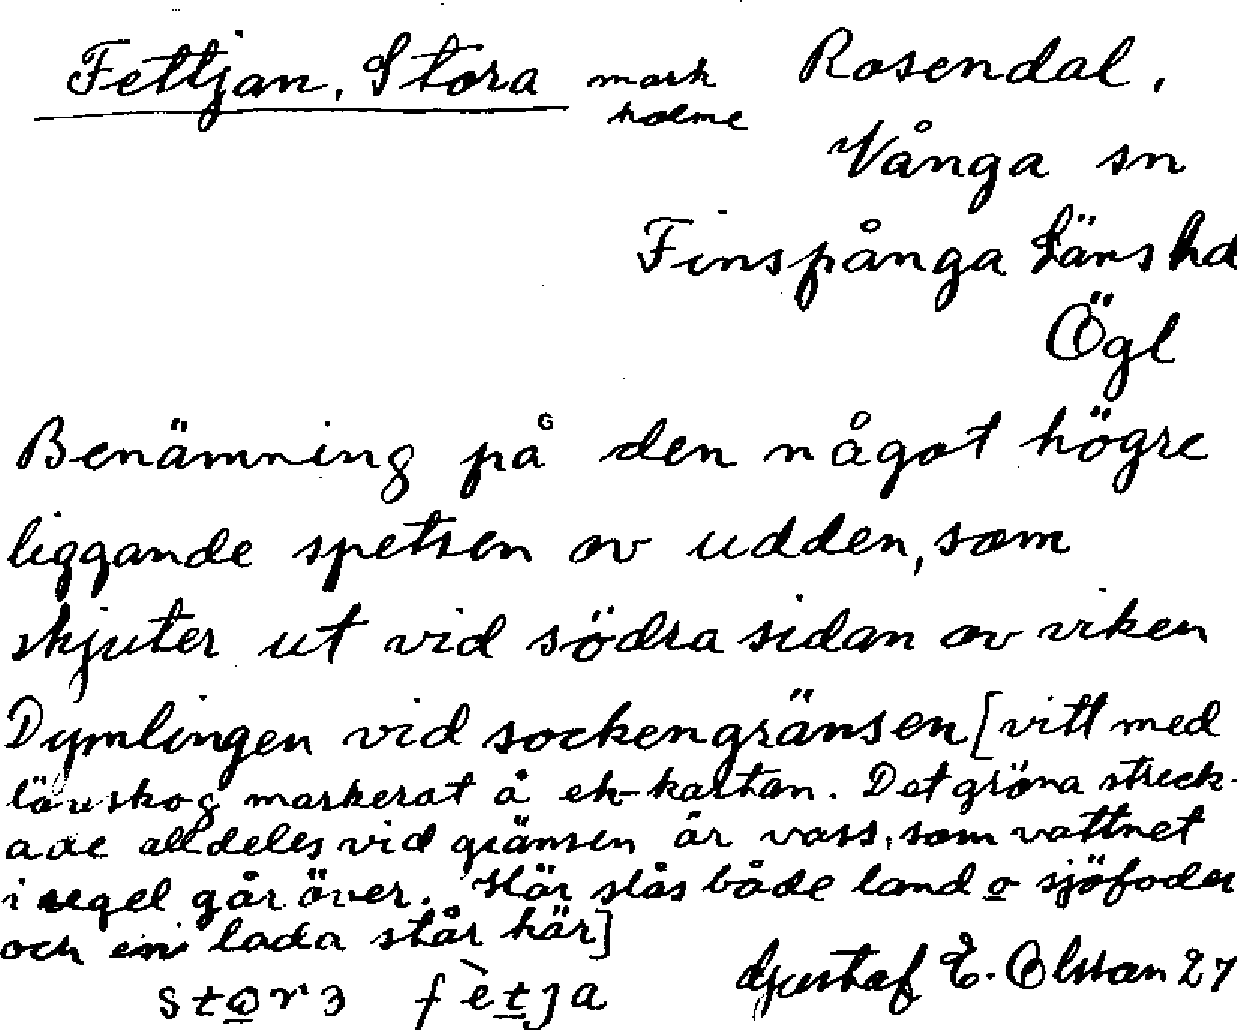 Fettjan, Stora mark Rosendal.
holme
Vånga sn
Finspånga Läns hd
Ögl
Benämning på den något högre
liggande spetsen av udden, som
skjuter ut vid södra sidan av viken
Dymlingen vid sockengränsen [vitt med
lövskog markerat å ek-kartan. Det gröna streck-
ade alldeles vid gränsen är vass, som vattnet
i regel går över. Här slås både land o sjöfoder
och en lada står här]
Gustaf E. Olsson 27